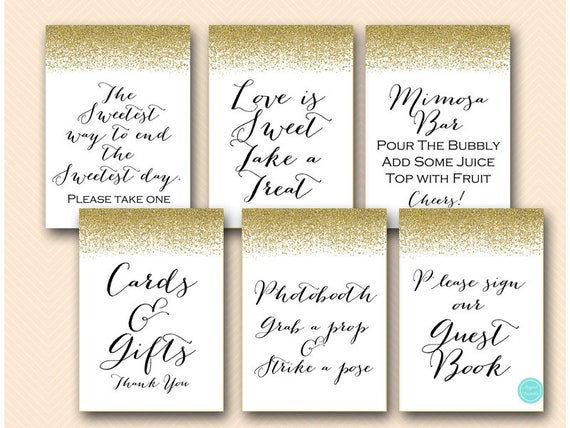 The
Sweetest
way to end
the
Sweetest day.
Please take one
Love is
Sweet
Take a
Treat
Mimosa
Bar
Pour The Bubbly
Add Some Juice
Top with Fruit
Cheers!
Cards
&
Gifts
Thank You
Photobooth
Grab a prop
&
Strike a pose
Please sign
our
Guest
Book